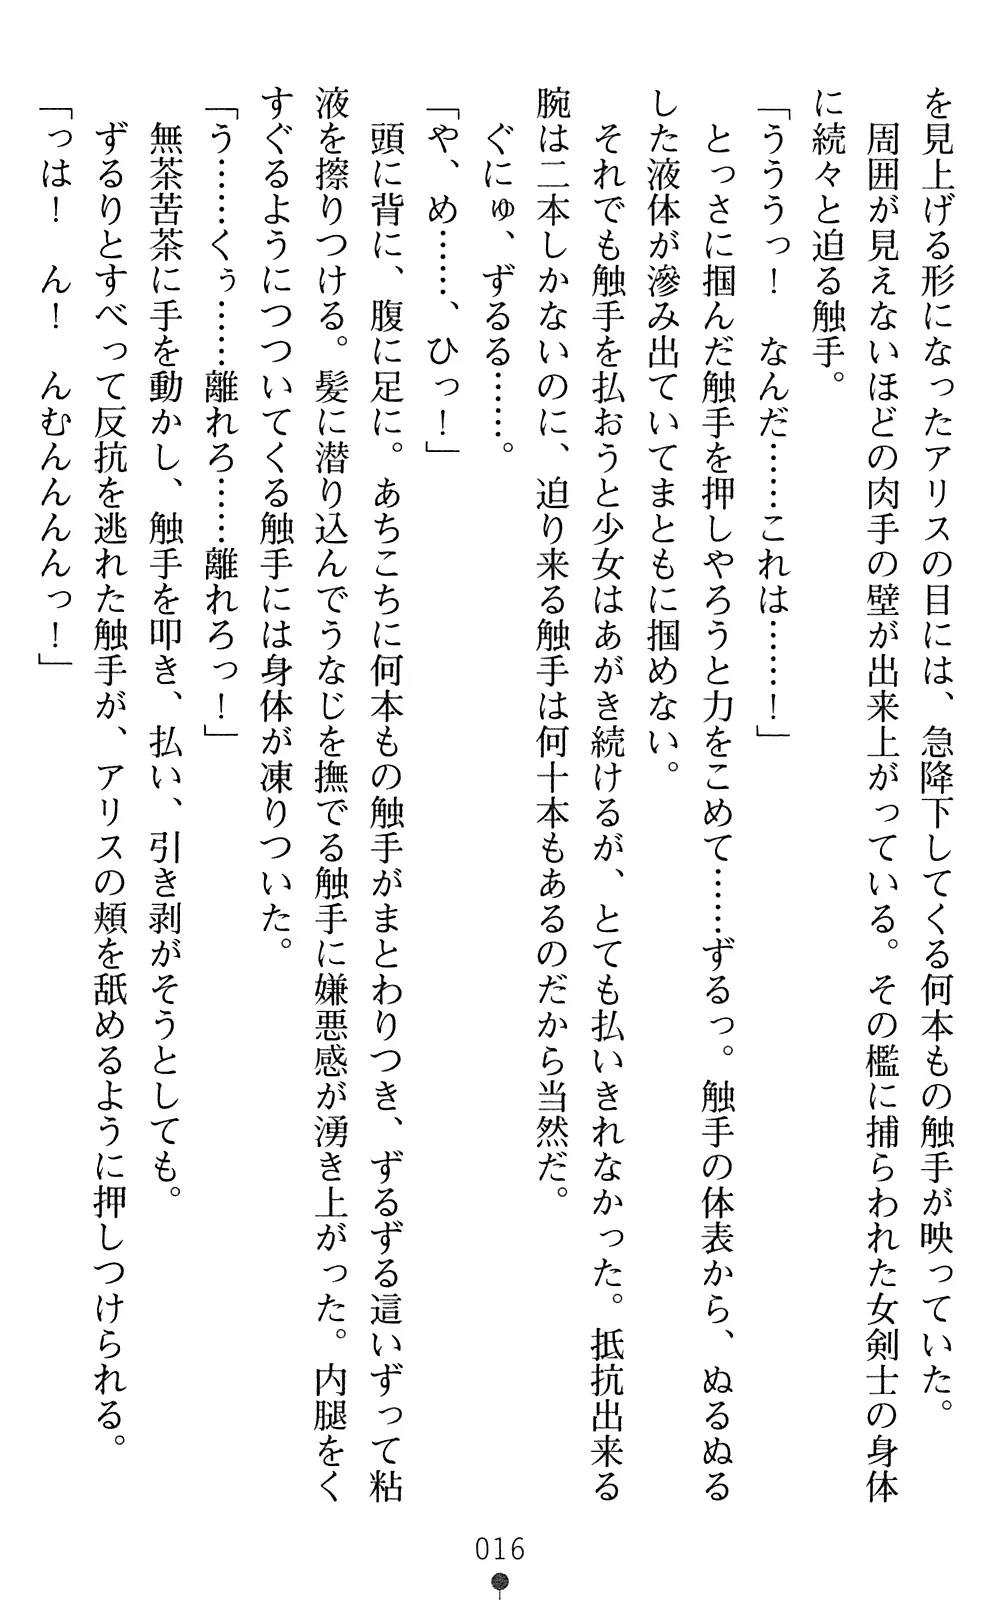 を見上げる形になったアリスの目には、急降下してくる何本もの触手が映っていた。
周囲が見えないほどの肉手の壁が出来上がっている。その檻に捕らわれた女剣士の身体
に続々と迫る触手。
「うううっ！　なんだ……これは……！」
とっさに掴んだ触手を押しやろうと力をこめて……ずるっ。触手の体表から、ぬるぬる
した液体が滲み出ていてまともに掴めない。
それでも触手を払おうと少女はあがき続けるが、とても払いきれなかった。抵抗出来る
腕は二本しかないのに、迫り来る触手は何十本もあるのだから当然だ。
ぐにゅ、ずるる……。
「や、め……、ひっ！」
頭に背に、腹に足に。あちこちに何本もの触手がまとわりつき、ずるずる這いずって粘
液を擦りつける。髪に潜り込んでうなじを撫でる触手に嫌悪感が湧き上がった。内腿をく
すぐるようにつついてくる触手には身体が凍りついた。
「う……くぅ……離れろ……離れろっ！」
無茶苦茶に手を動かし、触手を叩き、払い、引き剥がそうとしても。
ずるりとすべって反抗を逃れた触手が、アリスの頬を舐めるように押しつけられる。
「っは！　ん！　んむんんんんっ！」
016